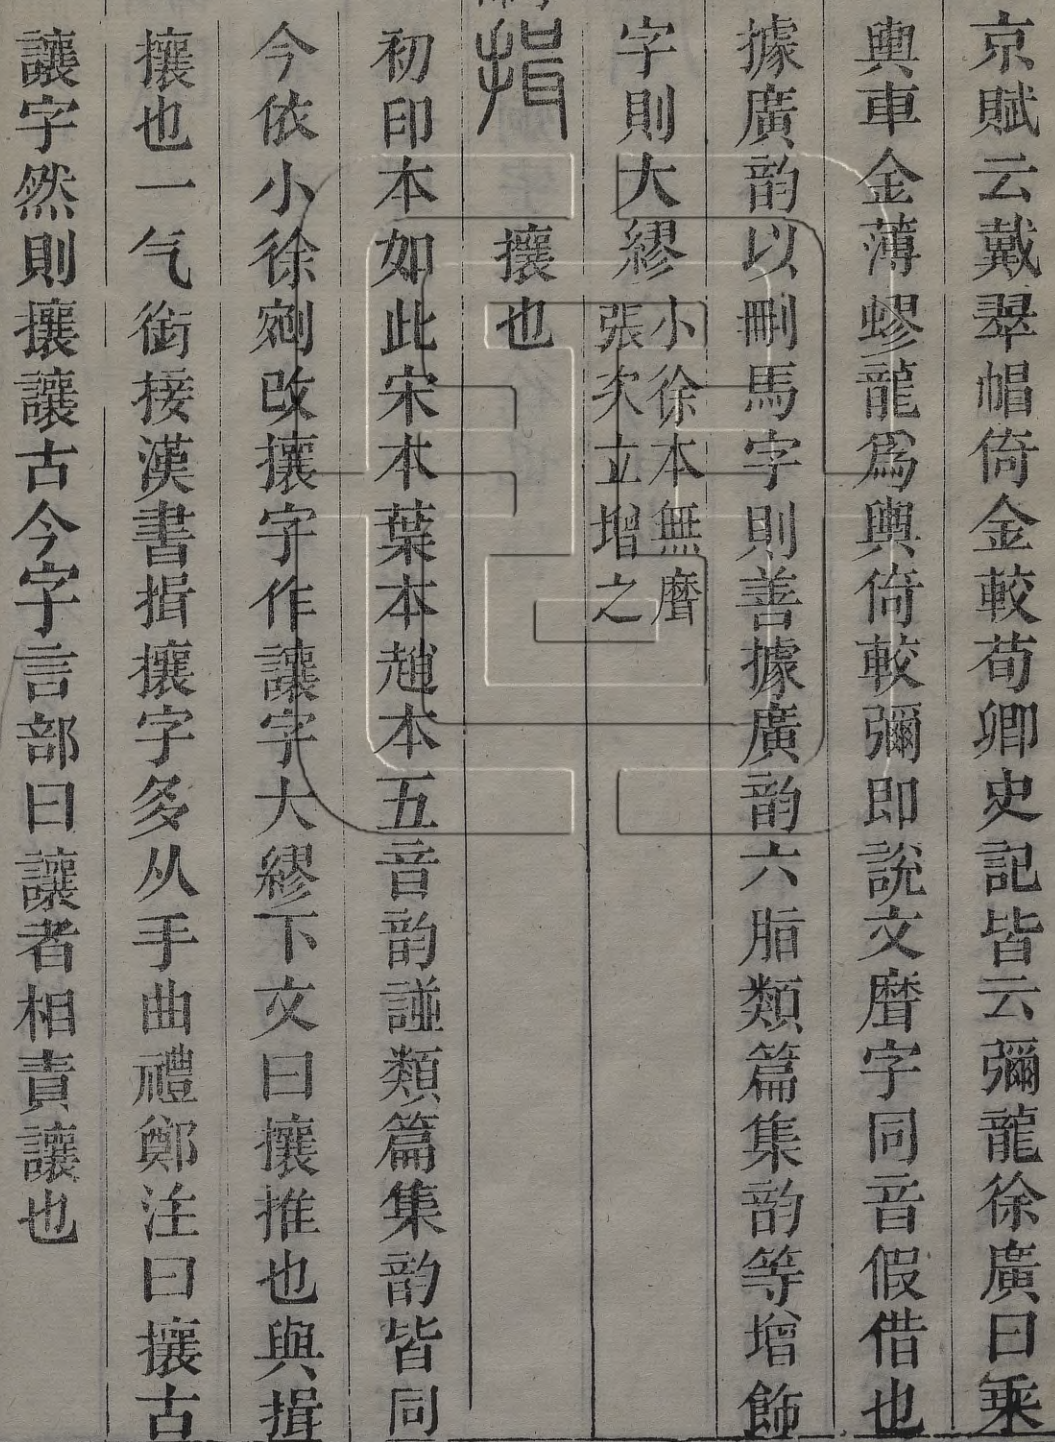 京賦云戴翠帽倚金較荀卿史記皆云彌龍徐廣曰乘
輿車金薄蟉龍爲輿倚較彌即說文䃺字同音假借也
據廣韵以刪馬字則善據廣韵六脂類篇集韵等增飾
字則大繆小徐本無䃺
張次立增之
揖 攘也
初印本如此宋本葉本趙本五音韵譜類篇集韵皆同
今依小徐剜改攘字作讓字大繆下文曰攘推也與揖
攘也一气銜接漢書揖攘字多从手曲禮鄭注曰攘古
讓字然則攘讓古今字言部曰讓者相責讓也